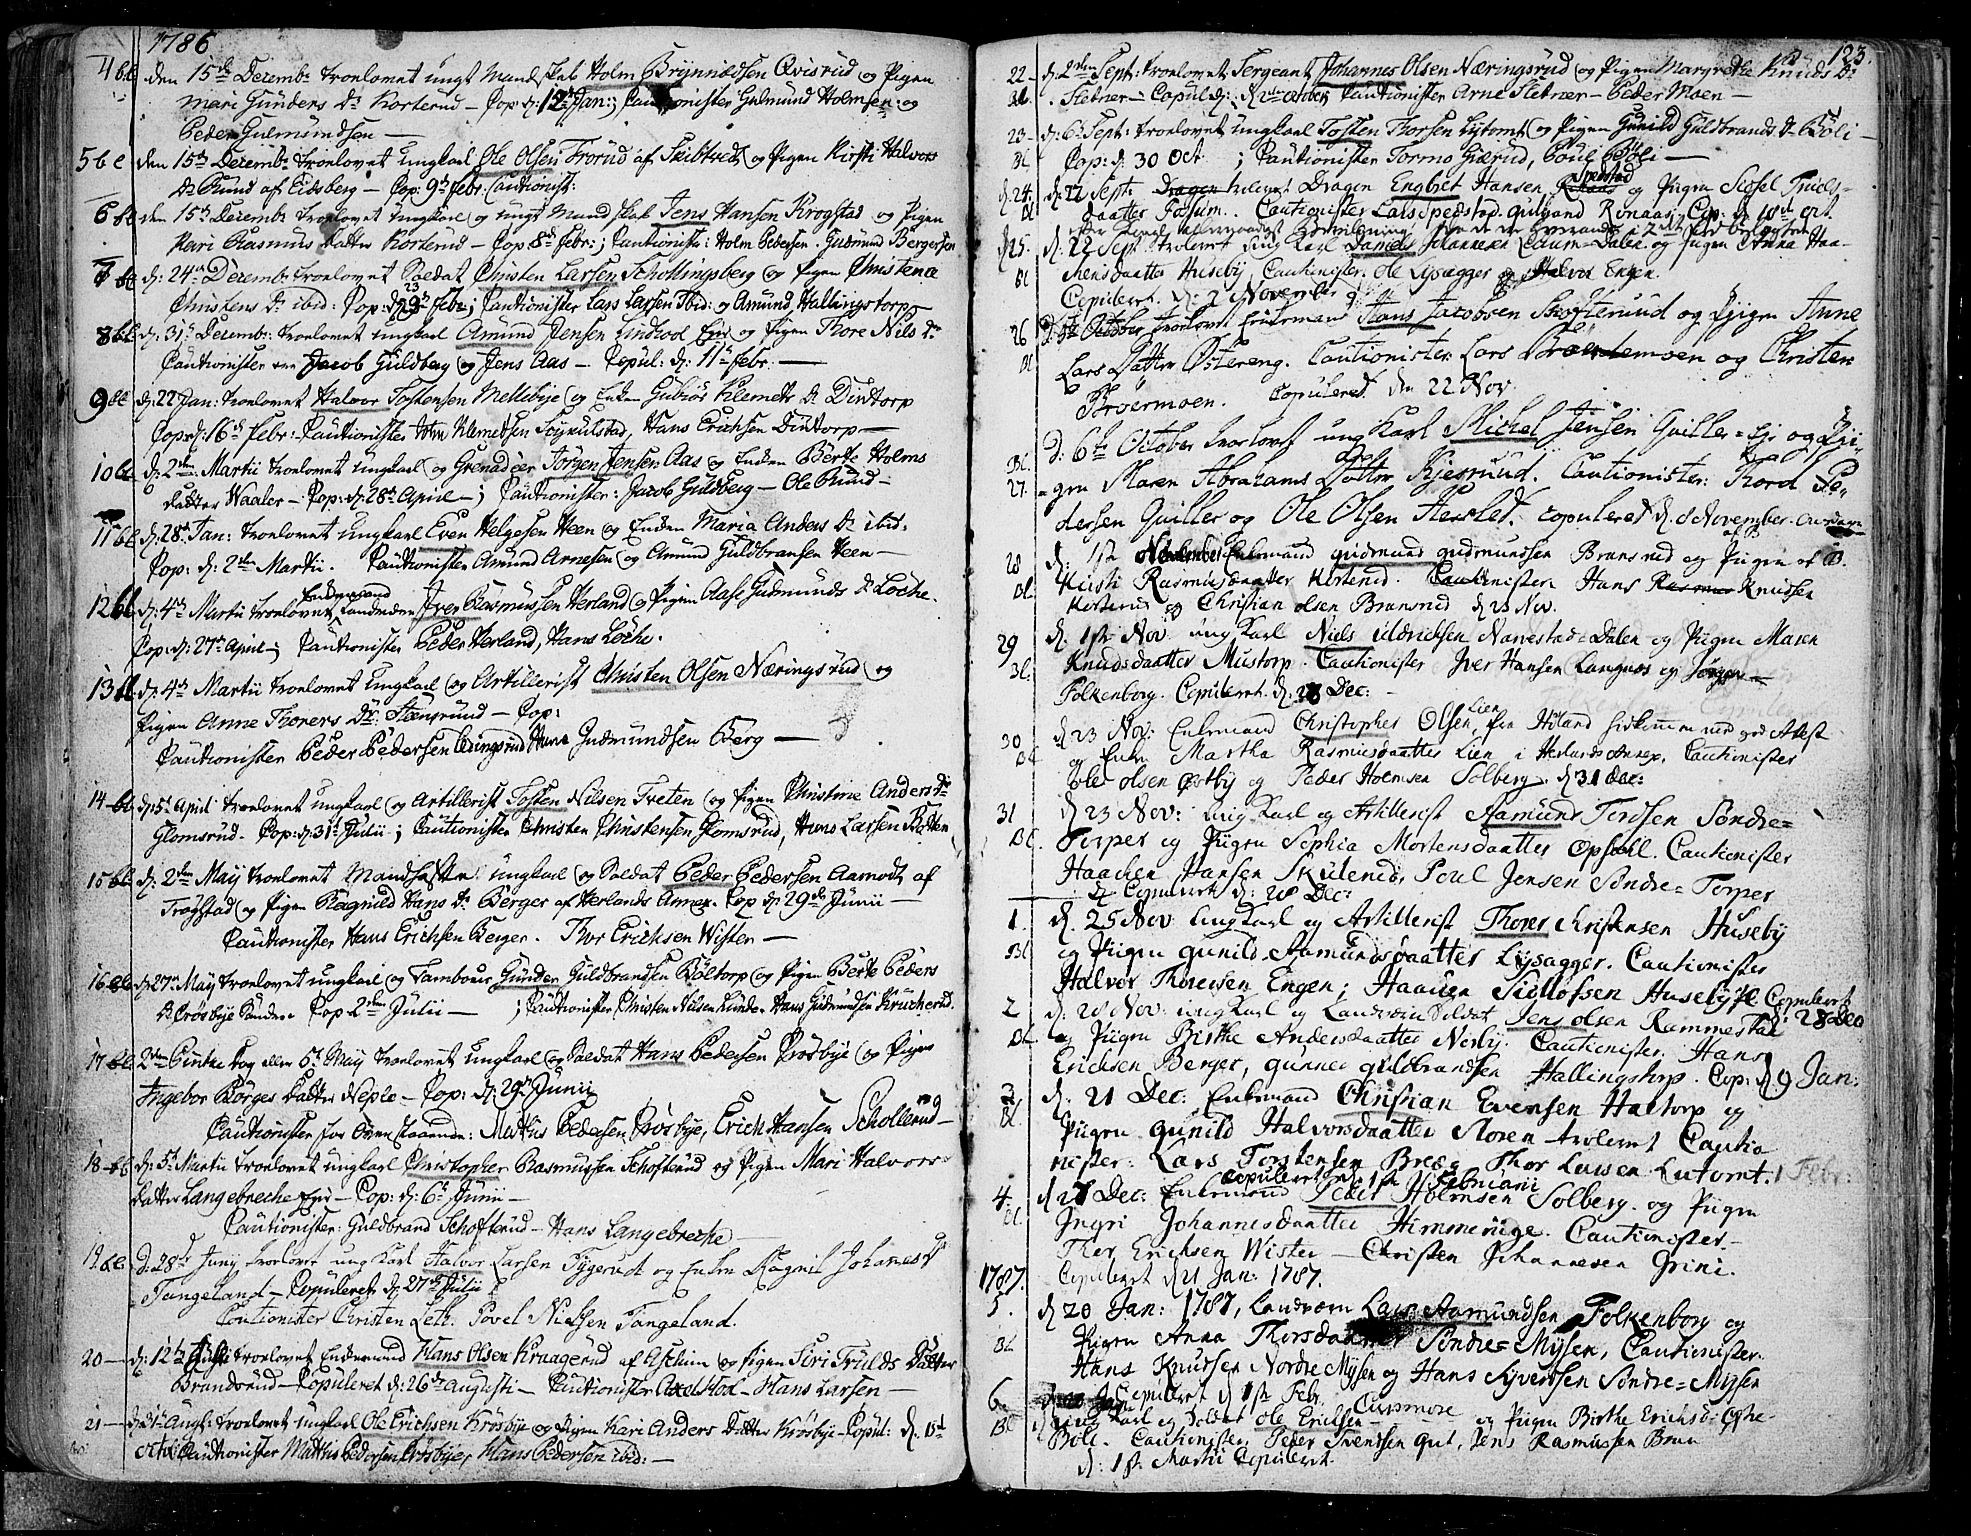 1786
4 bl den 15de Decembr troelovet ungt Mandskab Holm Brynnildsen Qvisrud og Pigen
Mari Gunders Dr Korterud - Cop: d: 12te Jan:; Cautionister Gudmund Holmsen og
Peder Gulmundsen -
5 bl den 15de Decembr troelovet ungkarl Ole Olsen Frorud af Skibtvedt og Pigen Kirsti Halvors
Dr Rund af Eidsberg - Cop: 9de Febr: Cautionist:
6 bl den 15de Decembr troelovet ungkarl og ungt Mandskab Jens Hansen Krogstad og Pigen
Kari Rasmus Datter Korterud - Cop: 8de Febr:; Cautionister: Holm Pedersen. Gudmund Bergersen
7 bl d: 24de Decembr troelovet Soldat Christen Larsen Schollingsberg og Pigen Christena
Christens Dr ibid: Cop: d: 23 Febr:; Cautionister Lars Larsen Ibid: og Amund Hallingstorp
8 bl d: 31te Decembr: troelovet ungkarl Amund Jensen Lindood Eje og Pigen Thore Nils Dr
Cautionister Jacob Guldberg og Jens Aas - Copul: d: 11te Febr: -
9 bl d: 22 Jan: troelovet Halvor Tostensen Mellebye og Enken Gubiør Klemets Dr Dintorp
Cop: d: 16de Febr: - Cautionister Klemetsen Hans Erichsen Dintorp -
10 bl d: 2den Martii troelovet ungkarl og Grenadeer Jørgen Jensen Aas og Enken Berte Holms
Datter Waaler - Cop: d: 28de April -; Cautionister: Jacob Guldberg - Ole Rund -
11 bl d: 28de Jan: troelovet ungkarl Even Helgesen Heen og Enken Maria Anders Dr ibid:
Cop: d: 2den Martii. Cautionister Amund Arnesen og Amund Guldbransen Heen -
12 bl d: 4de Martii troelovet Enkemand Landværn Iver Rasmussen Herland og Pigen Aase Gudmunds Dr Løche.
Cop: d: 27de April -; Cautionister Peder Herland, Hans Løche.
13 bl d: 4de Martii troelovet ungkarl og Artillerist Christen Olsen Næringsrud og
Pigen Anne Thorers Dr: Steensrund - Cop:
Cautionister Peder Pedersen Hans Gudmundsen Berg -
14 bl d: 5te April troelovet ungkarl og Artillerist Tosten Nilsen Treten og Pigen Christine Anders Dr
Glomsrud - Cop: d: 31te Julii; Cautionister Christen Christensen Glomsrud, Hans Larsen
15 bl d: 2den Maij troelovet Mandskab ungkarl og Soldat Peder Pedersen Aamodt af
Trøgstad og Pigen Ragnild Hans Dr Berger af Herlands Annex. Cop d: 29de Junii -
Cautionister Hans Erichsen Berger. Thor Erichsen Wister -
16 bl d: 27de Maij troelovet ungkarl og Tambour Gunder Guldbrandsen Bøltorp og Pigen Berte Peders
Dr Crøsbye Søndre Cop 2den Julii -; Cautionister Christen Nilsen Lunde - Hans Gudmundsen Krucherud.
17 bl 2den Pintse Dag eller 5te Maij troelovet ungkarl og Soldat Hans Pedersen Crøsbye og Pigen
Ingebor Børges Datter Neple - Cop: d: 29de Junii
Cautionister for Ovenstaaende: Mathis Pedersen Crøsbye, Erich Hansen Schollerud -
18 bl d: 5te Martii troelovet ungkarl Christopher Rasmussen Schofterud og Pigen Mari Halvors
Datter Langebreche Eje - Cop: d: 6te Junii -
Cautionister: Guldbrand Schofterud - Hans Langebreche -
19 bl d: 28de Junij troelovet ungkarl Halvor Larsen Tygerudt og Enken Ragnil Johanesdr
Tangeland - Copuleret d: 27de Julii
Cautionister Christen Leth. Povel Nielsen Tangeland.
20 - d: 12te Julii troelovet Enkemand Hans Olsen Kraagerud af Aschim og Pigen Siri Truls Datter
Brandsrud - Copuleret d: 26de Augusti - Cautionister Axel Stod - Hans Larsen -
21 - d: 31te Augst: troelovet ungkarl Ole Erichsen Krøsbye og Pigen Kari Anders Datter Krøsbye - Copul: d: 15de
Octobr Cautionister Mathis Pedersen Crøsbye, Hans Pedersen ibid: -
123.
22 - d: 2den Sept: troelovet Sergeant Johannes Olsen Næringsrud og Pigen Margrethe Knuds Dr
bl. Slebner - Copul d: 2den October Cautionister Arne Slebner - Peder Moen -
23 - d: 6te Sept: troelovet ungkarl Tosten Thorsen Lytomt og Pigen Gunild Guldbrands Dr Bøli -
bl Cop: d: 30 Oct; Cautionister Tormo Giærud, Poul Bøli -
24. d: 22 Sept: trolovet Dragon Engbret Hansen Spedstad og Pigen Sissel Truels-
bl daatter Fossum. Cautionister Lars Spedstad. Gulbrand Ramaas. Cop: d: 18de Oct.
25. d: 22 Sept: trolovet ungkarl Daniel Johannesen Dalen og Pigen Anna Haa-
bl kensdaatter Huseby. Cautionister: Ole Lysagger og Halvor Engen.
Copuleret d: 2 November
26 d: October troelovet Enkemand Hans Jacobsen Skofterund og Pigen Anne
bl Lars Datter Østereng. Cautionister Lars Brændemoen og Christen
Brøermoen. Copuleret den 22 Nov.
bl. d: 6te October troelovet ungkarl Michel Jensen Guiller-Eje og Pi-
27. gen Maren Abrahams Datter Kjesrund. Cautionister: Thord Pe-
dersen Guiller og Ole Olsen Herslet. copuleret d. 8 November.
28 d: 1ste November Enkemand Gudmund Gudmundsen Bransrud og Pigen
bl. Kiersti Rasmusdaatter Korterud. Cautionister Hans Knudsen
Korterud og Christian Olsen Bransrud d 23 Nov.
29 d: 1ste Nov: ungkarl Niels Uldricksen Narvestad-Dalen og Pigen Maren
bl. Knudsdaatter Mustorp. Cautionister Iver Hansen Langnæs og Jørgen
Folkenborg. Copuleret d: 28 Dec: -
30 d 23 Nov: Enkemand Christopher Olsen Lien fra Høland hidkommen med god Attest
bl og Enke Martha Rasmusdaatter Lien i Herlands Annex. Cautionister
Ole Olsen Østby og Peder Holmsen Solberg. d 31 Dec:
31 d 23 Nov: ung Karl og Artillerist Aamund Tordsen Søndre-
bl. Torper og Pigen Sophia Mortensdaatter Opsahl. Cautionister
Haachen Hansen Skulerud, Poul Jensen Søndre-Torper
Copuleret d: 28 Dec:
1. d. 25 Nov: ungkarl og Artillerist Thorer Christensen Huseby
bl og Pigen Gunild Aamundsdaatter Lysagger. Cautionister
Halvor Thoresen Engen; Haaken Sidlofsen Huseby. Copuleret d: 28 Dec
2 d: 28 Nov: ungkarl og Landværn Soldat Jens Olsen Rammestad
bl. og Pigen Birthe Andersdaatter Nerby. Cautionister. Hans
Ericksen Berger, Gunner Guldbrandsen Hallingstorp. Cop: d 9 Jan:
3 d. 21 Dec: Enkemand Christian Evensen Haltorp og
bl. Pigen Gunild Halvorsdaatter Moren trolovet Cautio
nister: Lars Torstensen Bree, Thor Larsen Lutomt. 1 Febr:
Copuleret d: 1ste Februarii
4. d 28 Dec: Enkemand Peder Holmsen Solberg. og Pigen
bl. Ingri Johannesdaatter Himmerige. Cautionister -
Thor Ericksen Wister - Christen Johannesen Grini.
1787. Copuleret d 21 Jan: 1787.
5. d 20 Jan: 1787, Landværn Lars Aamundsen Folkenborg og
bl Pigen Anna Thorsdaatter Søndre-Mysen, Cautionister.
Hans Knudsen Nordre Mysen og Hans Syversen Søndre-Mysen
6. Copuleret d 1ste Febr.
bl ungkarl og Soldat Ole Ericksen og Pigen Birthe Ericksd:
Bøli. Cautionister: Peder Svendsen Gut, Jens Rasmussen Brun
d: 1ste Martii Copuleret.